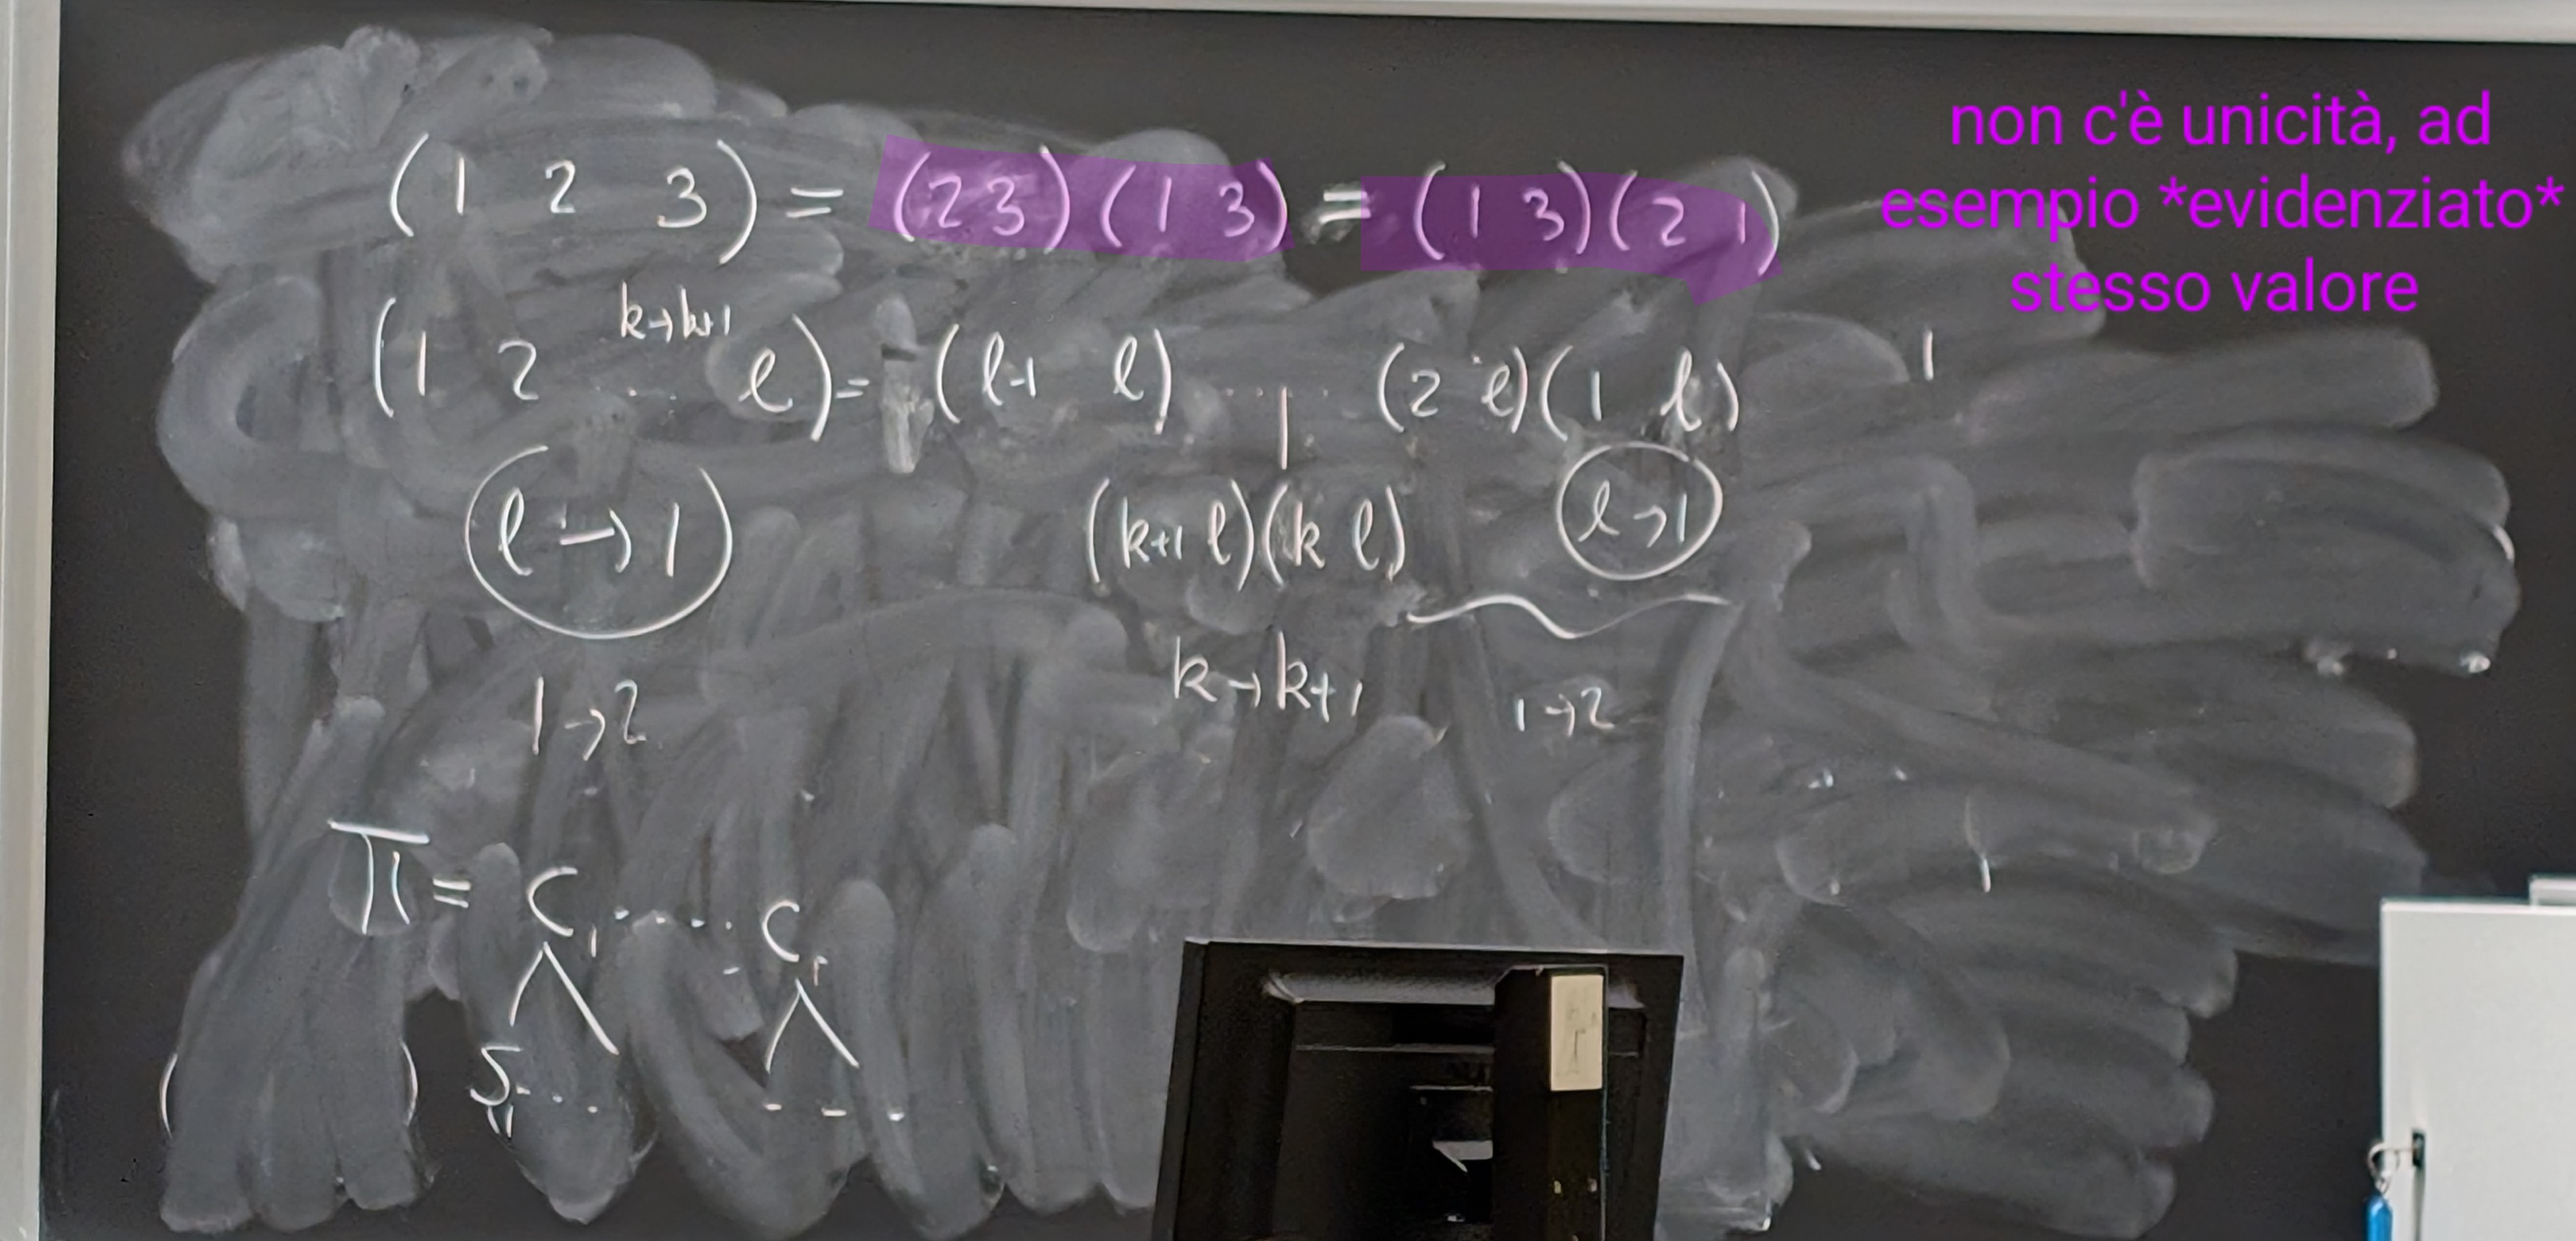 (1 2 3) = (2 3)(1 3) = (1 3)(2 1)
non c'è unicità, ad
esempio *evidenziato*
stesso valore
k→k+1
(1 2 ... l) = (l-1 l) ..... (2 l)(1 l)
l→1 (k+1 l)(k l) l→1
1→2 k→k+1 1→2
π = C₁ ..... Cᵣ
( ) S₁₁ ... - - -